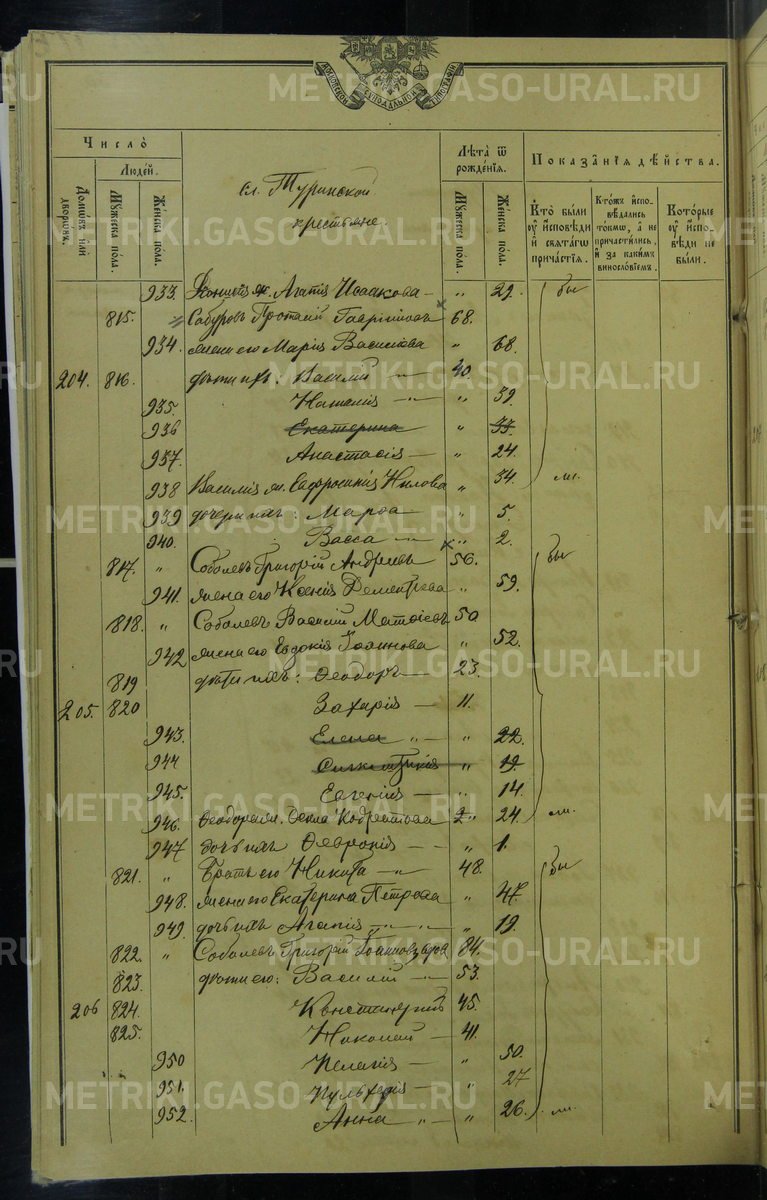 МОСКОВСКОЙ СѴНОДАЛЬНОЙ ТИПОГРАФІИ
METRIKI.GASO-URAL.RU
Число̀
Людей.
Домѡвъ или дворѡвъ.
Мꙋжеска пола.
Женска пола.
Лѣта ѿ рождѐнїѧ.
Мꙋжеска пола.
Женска пола.
Показанїѧ дѣйства.
Кто̀ были ᲂу҆ и҆сповѣди и҆ свѧтагѡ причастїѧ.
Кто́жъ и҆сповѣдались токмѡ, а҆ не причастились, и҆ за какимъ винословїемъ.
Которые ᲂу҆ и҆сповѣди не были.
сл. Туринской
крестьяне.
933. ж. Агапія Исаакова — " 29. бы
815. Сабуровъ Протасій 68.
934. жена его Марія Василіева " 68.
204. 816. дѣти ихъ: Василій — 40.
935. Наталія — " 39.
936 Екатерина " 33.
937. Анастасія — " 24.
938 Василія ж. Евфросинія Нилова " 34. ли.
939 дочери ихъ: Марѳа " 5.
940. Васса — " 2.
817. " Соболевъ Григорій Андреевъ 56. бы
941. жена его Ксенія Дементьева " 59.
818. " Соболевъ Василій Матѳіевъ 50
942 жена его Евдокія Іоаннова " 52.
819 дѣти ихъ: Ѳеодоръ — 23.
205. 820 Захарія — 11.
943. Елена " — " 22.
944 " 19.
945. Евгенія — " 14.
946. Ѳеодора ж. Ѳекла 24. ли.
947 дочь ихъ Ѳеѵронія — " 1.
821. " Братъ его Никита — 48. бы
948. жена его Екатерина Петрова " 47
949. дочь ихъ Агапія — " 19.
822. " Соболевъ Григорій Іоанновъ вдовъ 84.
823. дѣти его: Василій — 53.
206 824. Константинъ 45.
825. Николай — 41.
950 Пелагія — " 50.
951. Пульхерія — " 27
952. Анна " — " 26. ли.